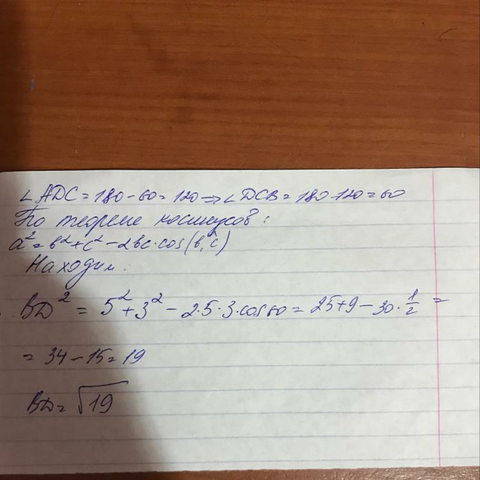 ∠ADC = 180 - 60 = 120 => ∠DCB = 180 - 120 = 60
По теореме косинусов:
a² = b² + c² - 2bc·cos(b,c)
Находим:
BD² = 5² + 3² - 2·5·3·cos60 = 25 + 9 - 30·1/2 =
= 34 - 15 = 19
BD = √19